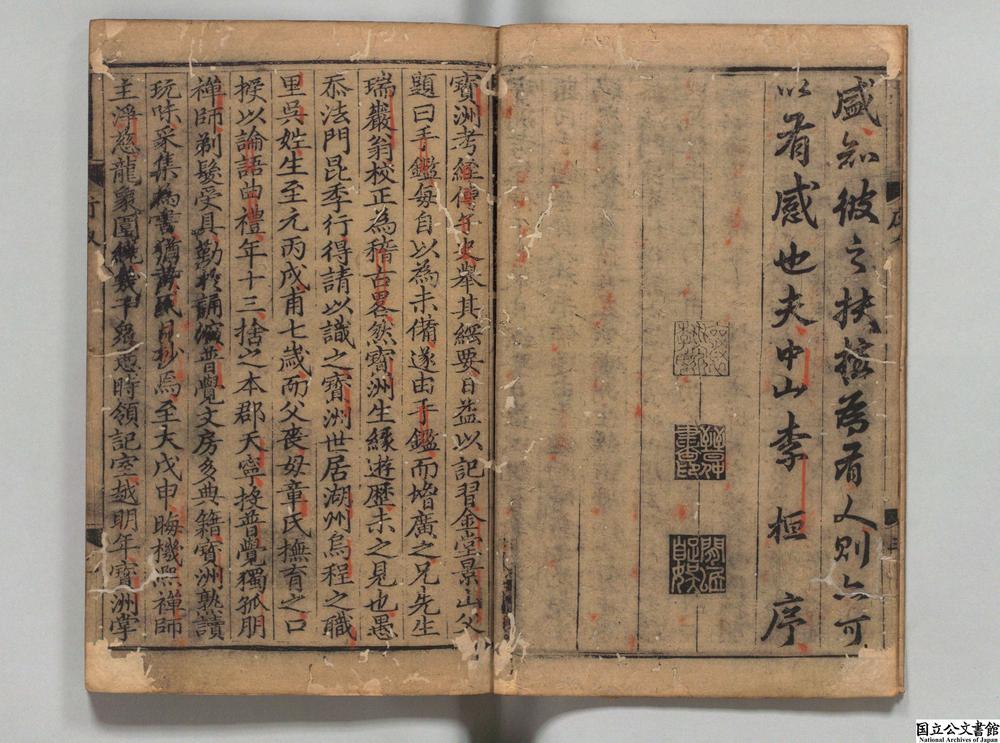 盛知彼之扶植為有人則亦可
以有感也夫中山李桓序
閒居自娛
寶洲考經傳子史舉其綱要日益以記習金堂景山父
題曰手鑑每自以為未備遂由手鑑而增廣之兄先生
瑞巖翁校正為稽古畧然寶洲生緣遊歷未之見也愚
忝法門昆季行得請以識之寶洲世居湖州烏程之職
里吳姓生至元丙戌甫七歲而父喪母章氏撫育之口
授以論語曲禮年十三捨之本郡天寧投普覺獨孤朋
禪師剃髮受具勤於誦諷普覺文房多典籍寶洲熟讀
玩味采集為書猶黃氏日抄焉至大戊申晦機熙禪師
主淨慈龍象圍繞幾千時領記室越明年寶洲掌
国立公文書館
National Archives of Japan